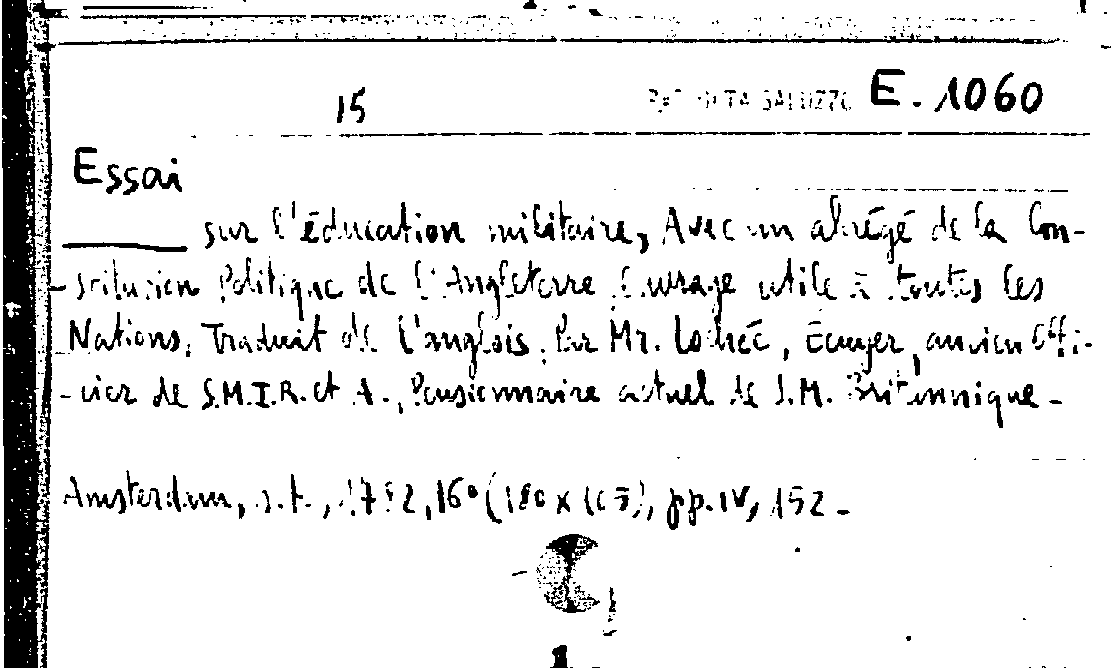 15 E. 1060
Essai
sur l'éducation militaire, Avec un abrégé de la Con-
-stitution Politique de l'Angleterre Ouvrage utile à toutes les
Nations, Traduit de l'anglois, Par Mr. Lochée, Ecuyer, ancien Offi-
-cier de S.M.I.R. et A., Pensionnaire actuel de S.M. Britannique -
Amsterdam, s.t., 16° (180 x 105), pp. IV, 152 -